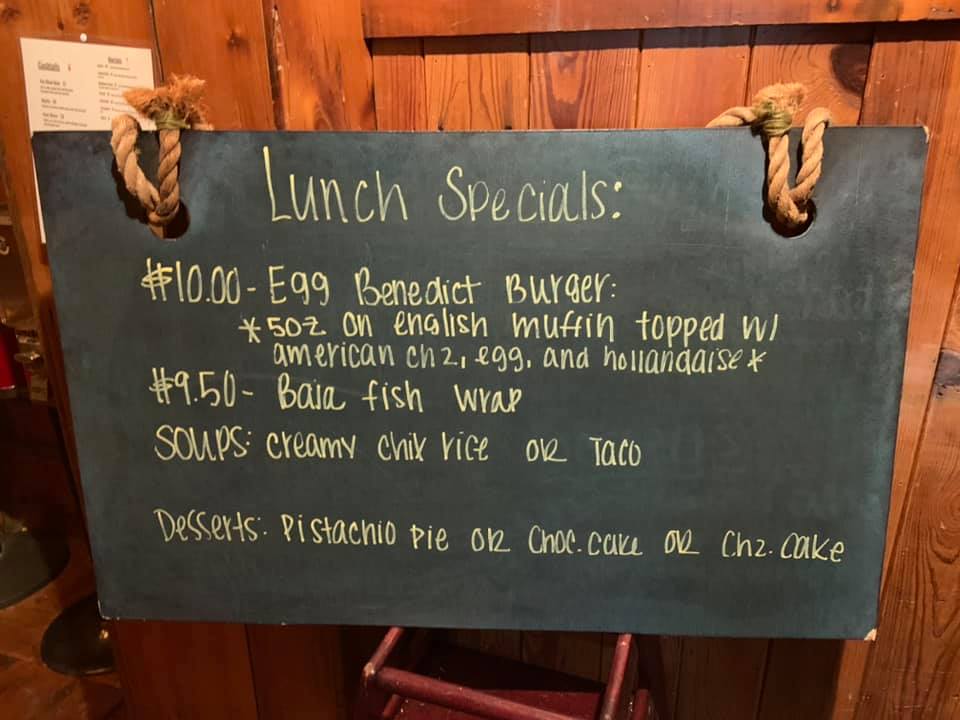 Cocktails
Lunch Specials:
$10.00 - Egg Benedict Burger:
*5oz on english muffin topped w/
american chz, egg, and hollandaise*
$9.50 - Baja fish wrap
SOUPS: creamy chix rice OR Taco
Desserts: Pistachio Pie OR Choc. cake OR Chz. Cake